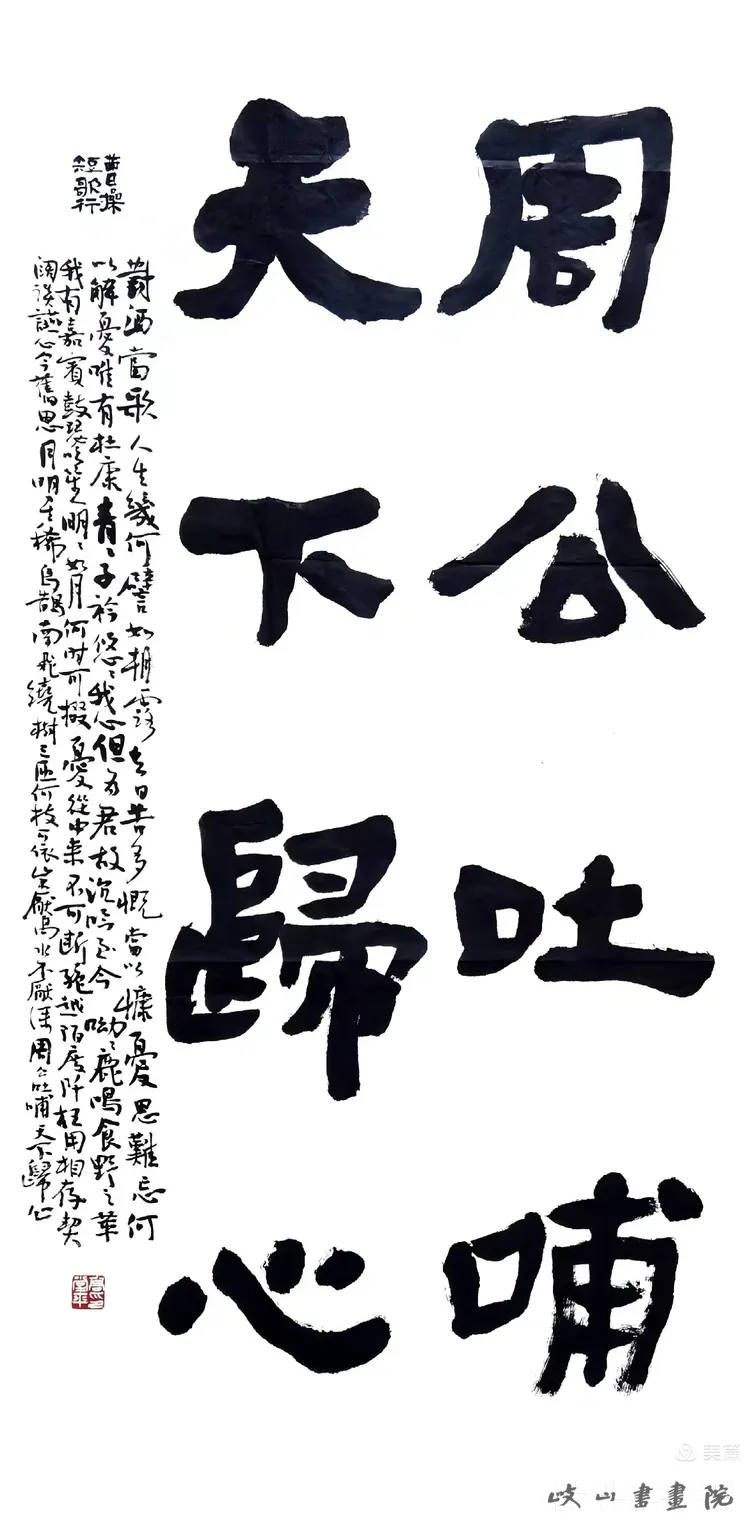 周公吐哺
天下歸心
曹操
短歌行
對酒當歌人生幾何譬如朝露去日苦多慨當以慷憂思難忘何
以解憂唯有杜康青〻子衿悠〻我心但為君故沉吟至今呦〻鹿鳴食野之苹
我有嘉賓鼓瑟吹笙明〻如月何時可掇憂從中来不可断絕越陌度阡枉用相存契
闊談讌心念舊恩月明星稀烏鵲南飛繞樹三匝何枝可依山不厭高水不厭深周公吐哺天下歸心
美篇
岐山書畫院